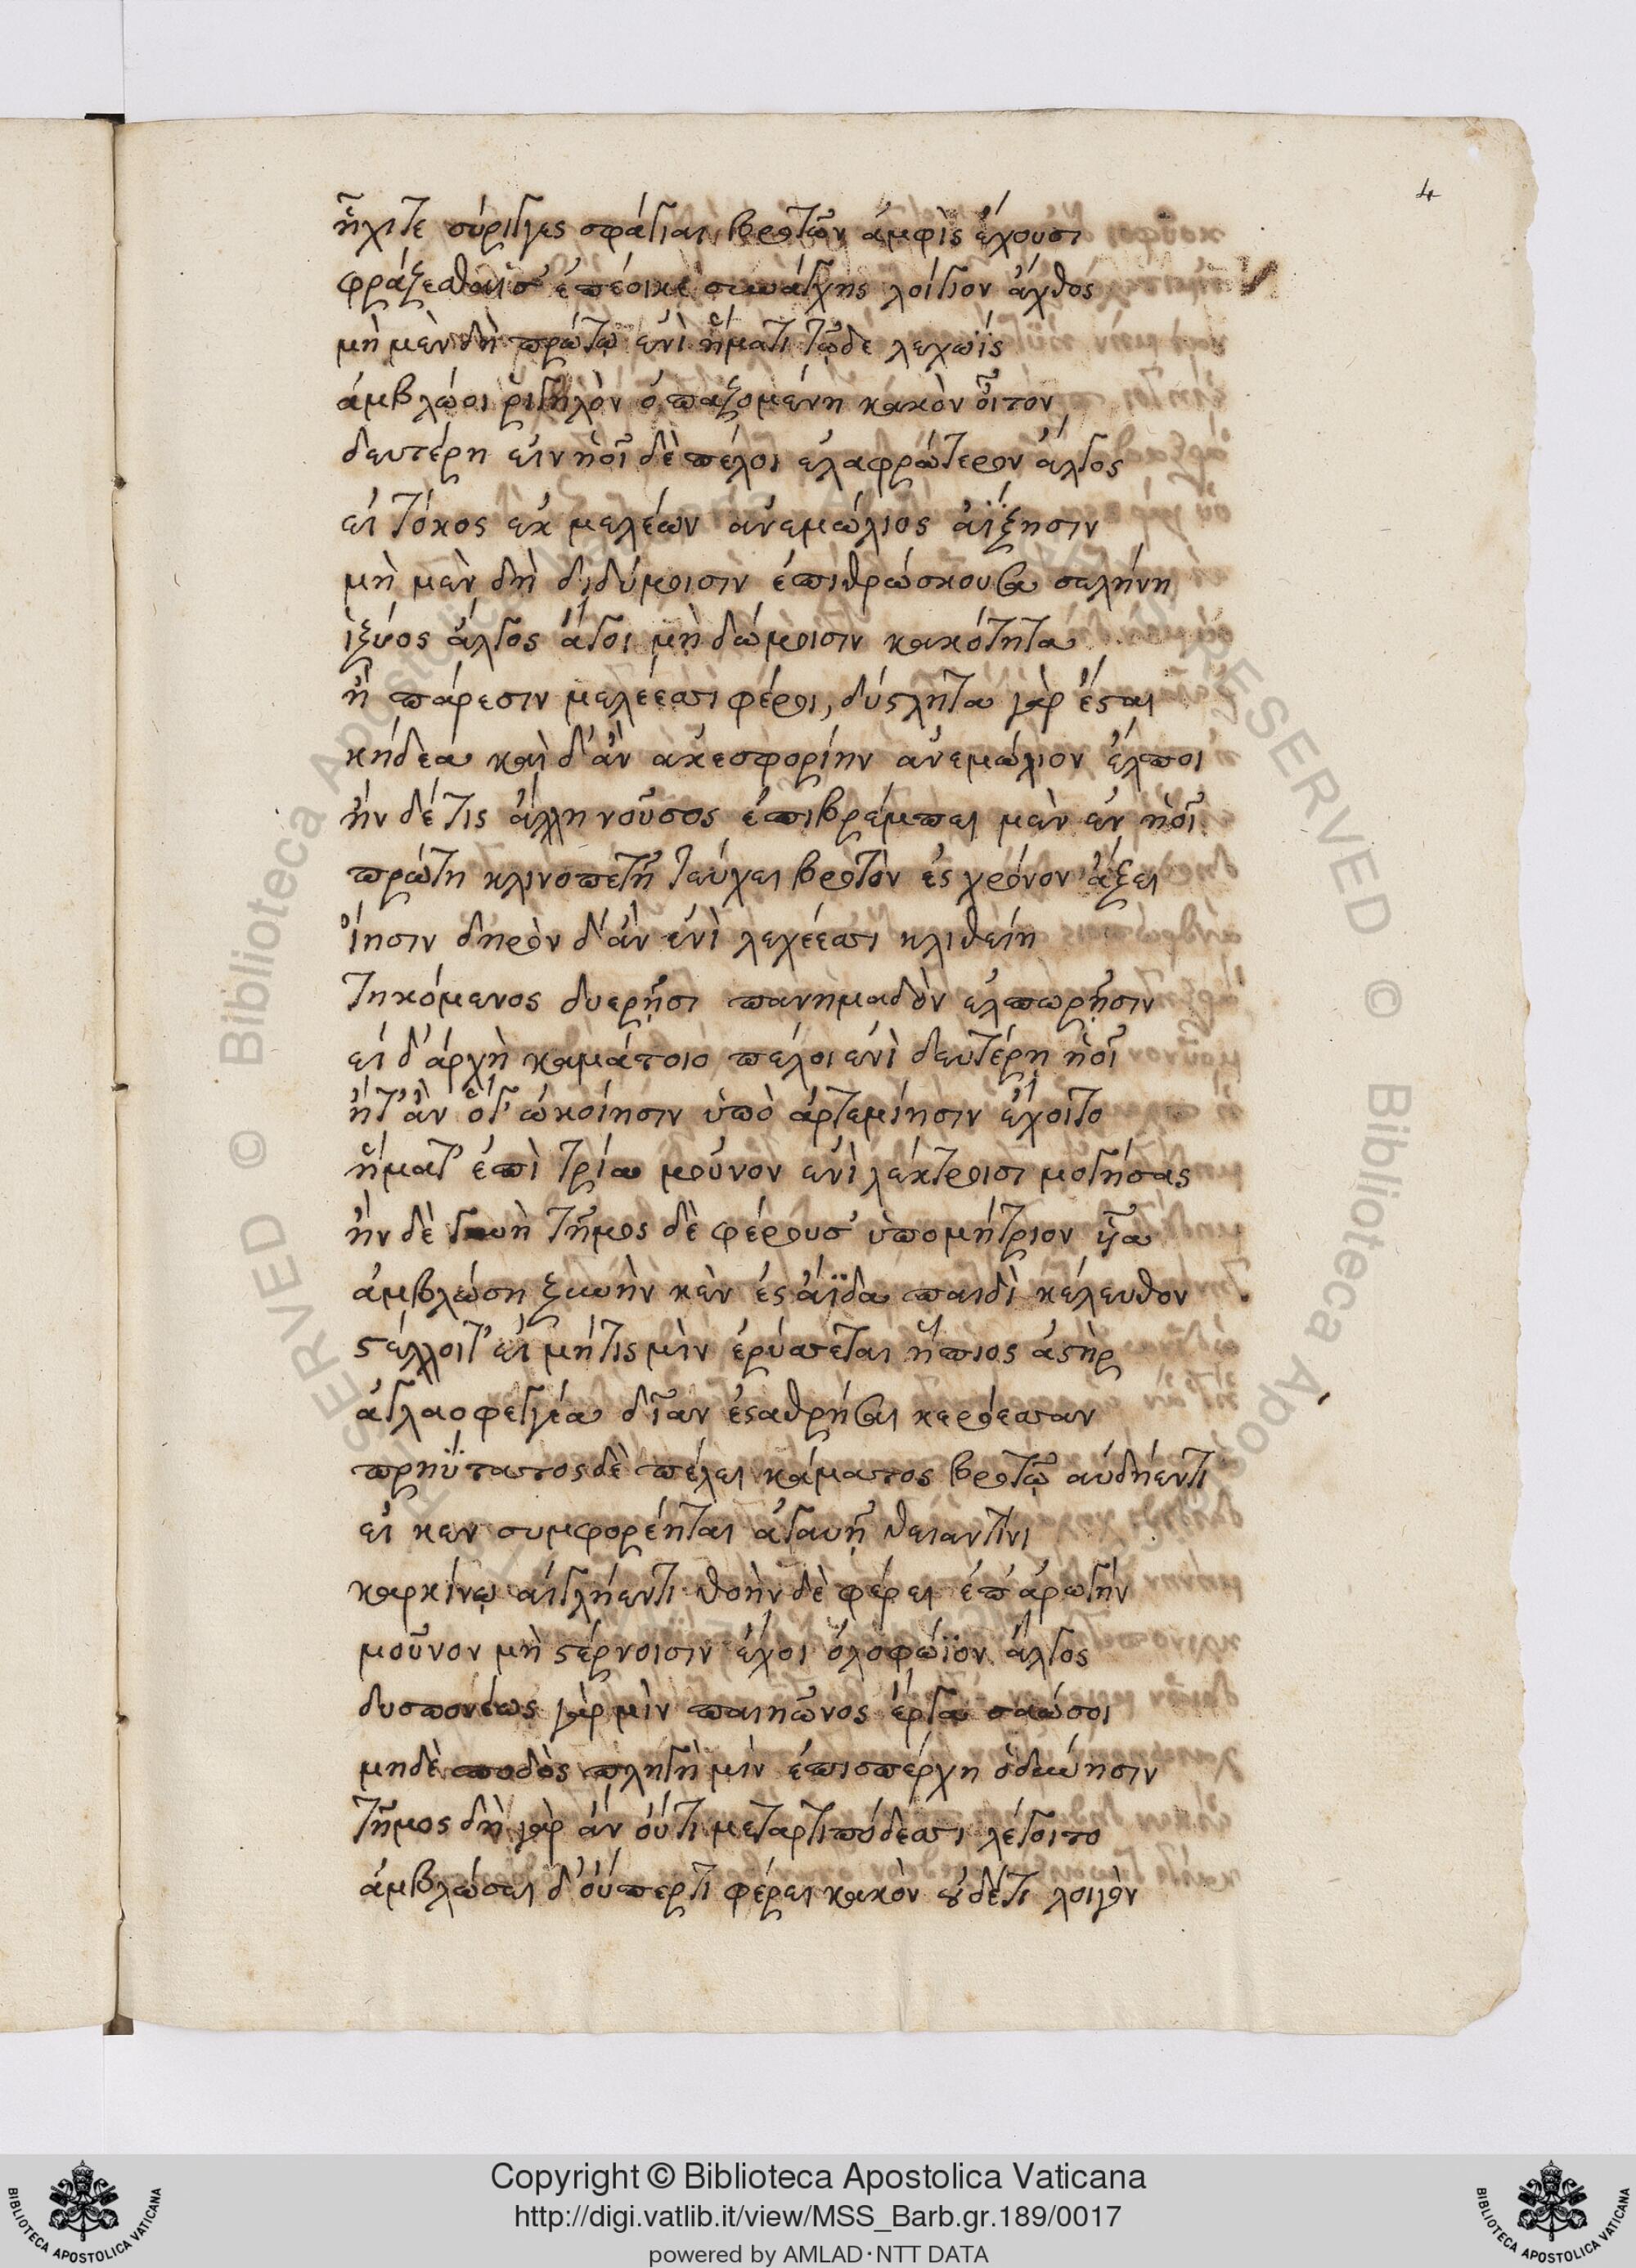 4
ἤχι τε σύριγγες σφάγιαι βροτῶν ἀμφὶς ἔχουσι
φράζεσθαί σ' ἐπέοικε συνάγχης λοίγιον ἄχθος
μὴ μὲν δὴ πρώτῳ ἐνὶ ἥματι τῷδε λεχωῒς
ἀμβλώοι ῥιγηλὸν ὀπαζομένη κακὸν οἶτον
δευτέρη εἰν ἠοῖ δὲ πέλοι ἐλαφρώτερον ἄλγος
εἰ τόκος ἐκ μελέων ἀνεμώλιος ἀΐξησιν
μὴ μὲν δὴ διδύμοισιν ἐπιθρώσκουσα σελήνη
ἰξύος ἄλγος ἄγοι μὴ δώμοισιν κακότητα
ἢ πάρεσιν μελέεσσι φέροι, δύςλητα γὰρ ἔσται
κήδεα καὶ δ' ἂν ἀκεσφορίην ἀνεμώλιον ἔλποι
ἢν δέ τις ἄλλη νοῦσος ἐπιβρέμπει μὲν ἐν ἠοῖ
πρώτη κλινοπετῆ τεύχει βροτὸν ἐς χρόνον ἄξει
ὅιησιν δηρὸν δ' ἂν ἐνὶ λεχέεσσι κλιθείη
τηκόμενος δυερῇσι πανημαδὸν ἐλπωρῇσιν
εἰ δ' ἀρχὴ καμάτοιο πέλοι ἐνὶ δευτέρῃ ἠοῖ
ἤτ' ἂν ὅγ' ὠκοίησιν ὑπὸ ἀρτεμίησιν ἔχοιτο
ἥματ' ἐπὶ τρία μοῦνον ἐνὶ λέκτροισι μογήσας
ἢν δὲ γυνὴ τῆμος δὲ φέρουσ' ὑπομήτριον ἷα
ἀμβλώση ξυνὴν κὲν ἐς ἄϊδα παιδὶ κέλευθον
στέλλοιτ' εἰ μήτις μὶν ἐρύσεται ἤπιος ἀστὴρ
ἀγλαοφεγγέα δῖαν ἐσαθρήσαι κερόεσσαν
πρηΰτατος δὲ πέλει κάματος βροτῷ αὐδήεντι
εἰ κεν συμφορέηται ἀγαυῇ θειαντίνι
καρκίνῳ αἰγλήεντι θοὴν δὲ φέρει ἐπ' ἀρωγήν
μοῦνον μὴ στέρνοισιν ἔχοι ὀλοφώϊον ἄλγος
δυσπονέως γὰρ μὶν παιηῶνος ἔργα σαώσοι
μηδὲ ποδὸς πληγὴ μὶν ἐπισπέρχη ὀδύνησιν
τῆμος δὴ γὰρ ἂν οὔτι μεταρτιπόδεσσι λέγοιτο
ἀμβλώσει δ' οὔπερτι φέρει κακὸν οὐδέτι λοιγὸν
Copyright © Biblioteca Apostolica Vaticana
http://digi.vatlib.it/view/MSS_Barb.gr.189/0017
powered by AMLAD・NTT DATA
BIBLIOTECA APOSTOLICA VATICANA
BIBLIOTECA APOSTOLICA VATICANA